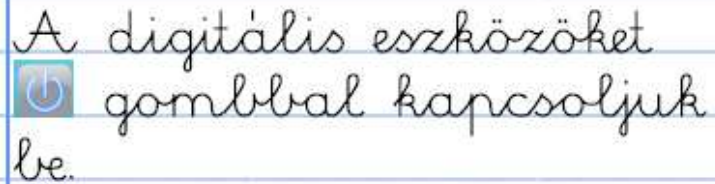 A digitális eszközöket
gombbal kapcsoljuk
be.